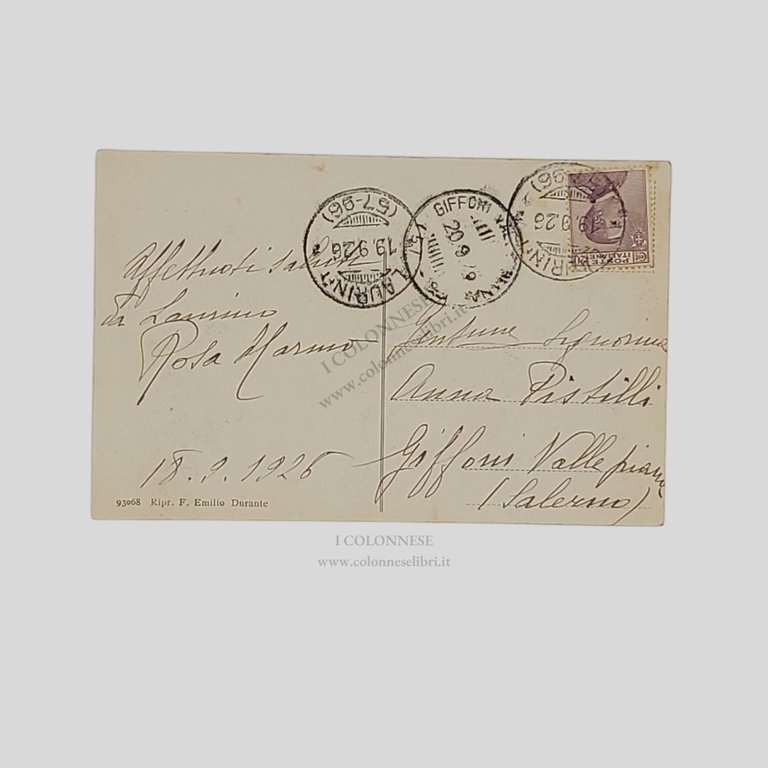 Affettuosi saluti
da Laurino
Rosa Marmo
18.9.1926
93068 Ripr. F. Emilio Durante
(57-96)
19.9.26
LAURINO
GIFFONI
20.9
(57-96)
19.9.26
LAURINO
POSTE
ITALIANE
Gentime Signorina
Anna Pistilli
Giffoni Valle piana
(Salerno)
I COLONNESE
www.colonneselibri.it
I COLONNESE
www.colonneselibri.it